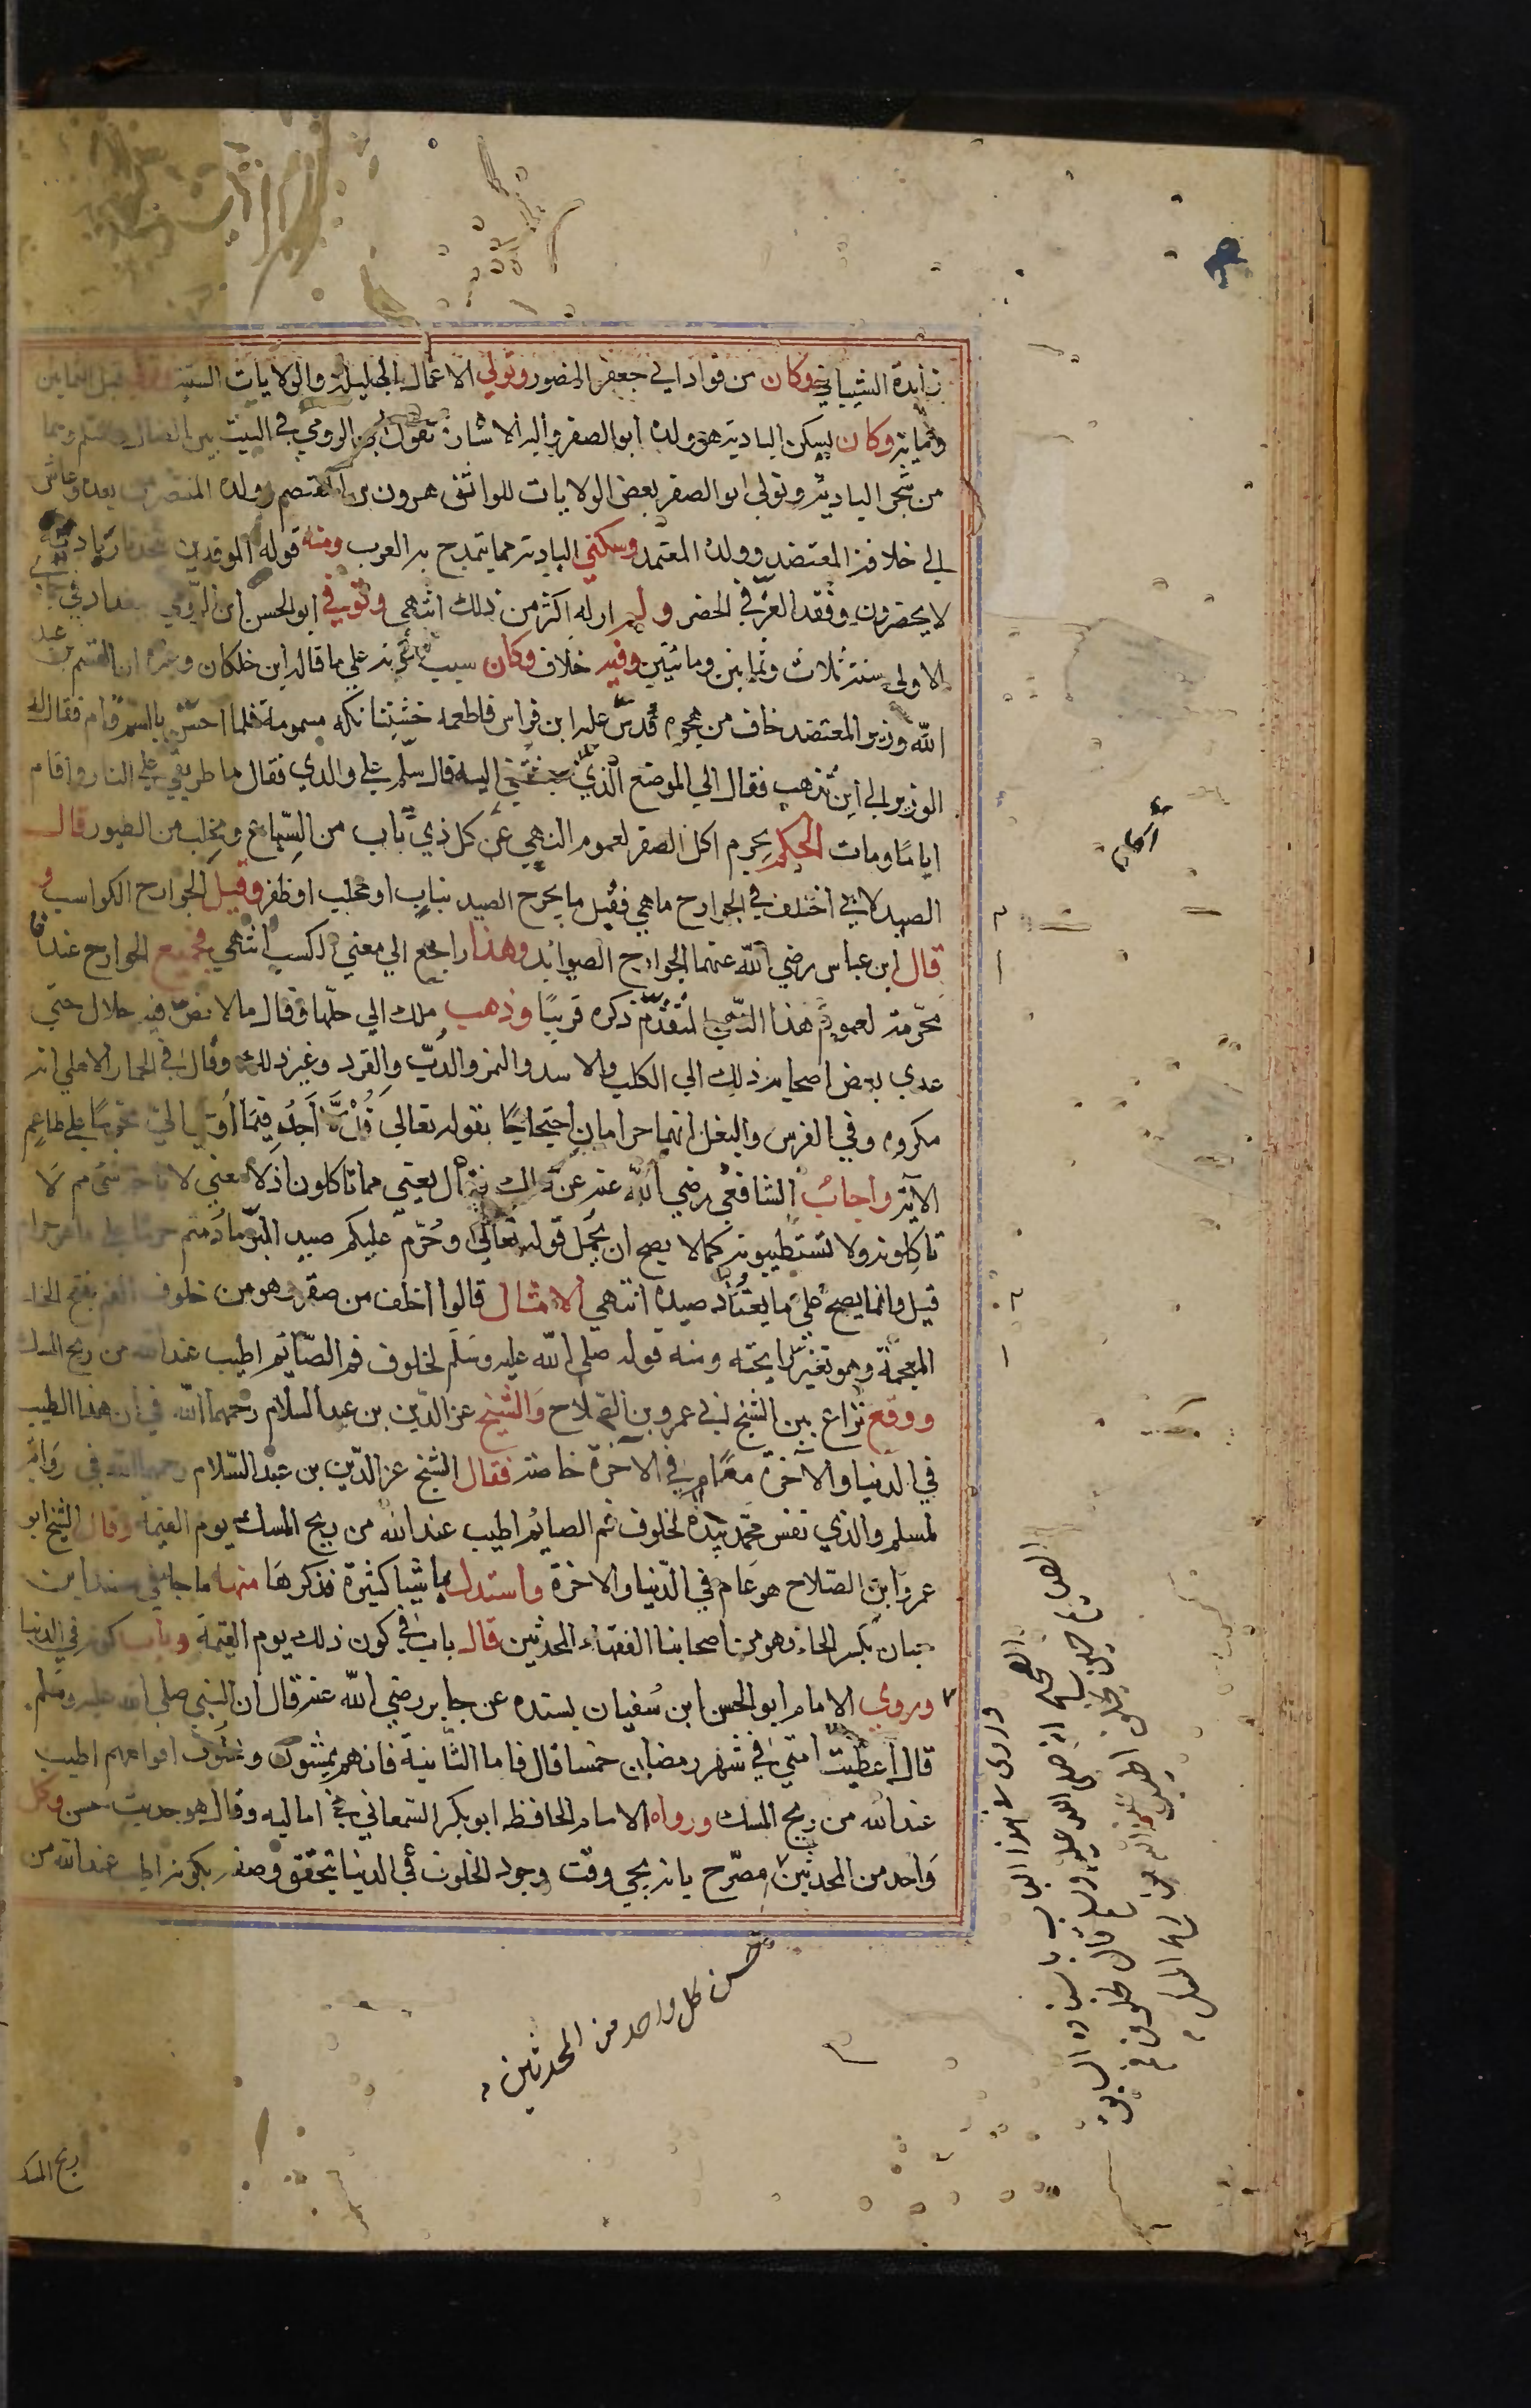 زايدة الشيباني وكان من قواد ابي جعفر المنصور وتولي الاعمال الجليلة والولايات السنية
وثمانية وكان يسكن البادية هو وولده ابو الصقر واليه الاشارة بقول ابن الرومي في البيت بين الضال والسلم وهما
من شجر البادية وتولي ابو الصقر بعض الولايات للواثق هرون بن المعتصم وولده المنتصر من بعده وعاش
الي خلافة المعتضد وولده المعتمد وسكني البادية مما يتمدح به العرب ومنه قوله الموقدين بنجد نار بادية
لا يحضرون وفقد العز في الحضر ولم ار له اكثر من ذلك انتهي وتوفي ابو الحسن ابن الرومي ببغداد في جمادي
الاولي سنة ثلاث وثمانين ومائتين وفيه خلاف وكان سبب موته علي ما قاله ابن خلكان وغيره ان القسم بن عبيد
الله وزير المعتضد خاف من هجوه فدس عليه ابن فراس فاطعمه خشتنانكه مسمومة فلما احس بالسم قام فقال له
الوزير الي اين تذهب فقال الي الموضع الذي بعثتني اليه قال سلم علي والدي فقال ما طريقي علي النار واقام
اياما ومات الحكم يحرم اكل الصقر لعموم النهي عن كل ذي ناب من السباع ومخلب من الطيور قال
الصيدلاني اختلف في الجوارح ما هي فقيل ما يجرح الصيد بناب او مخلب او ظفر وقيل الجوارح الكواسب و
قال ابن عباس رضي الله عنهما الجوارح الصوايد وهذا راجع الي معني الكسب انتهي فجميع الجوارح عندنا
محرمة لعموم هذا النهي المتقدم ذكره قريبا وذهب ملك الي حلها وقال ما لا نص فيه حلال حتي
عدي بعض اصحابه ذلك الي الكلب والاسد والنمر والدب والقرد وغير ذلك وقال في الحمار الاهلي انه
مكروه وفي الفرس والبغل انهما حرامان احتجاجا بقوله تعالي قل لا اجد فيما اوحي الي محرما علي طاعم
الاية واجاب الشافعي رضي الله عنه عن ذلك بان قال يعني مما تاكلون اذ لا معني لا باحة شي مما لا
تاكلونه ولا تستطيبونه كما لا يصح ان يحمل قوله تعالي وحرم عليكم صيد البر ما دمتم حرما علي ما هو حرام
قبل وانما يصح علي ما يعتاد صيده انتهي الامثال قالوا اخلف من صقر وهو من خلوف الفم بفتح الخاء
المعجمة وهو تغير رايحته ومنه قوله صلي الله عليه وسلم لخلوف فم الصائم اطيب عند الله من ريح المسك
ووقع نزاع بين الشيخ ابي عمرو بن الصلاح والشيخ عز الدين بن عبد السلام رحمهما الله في ان هذا الطيب
في الدنيا والآخرة معا ام في الآخرة خاصة فقال الشيخ عز الدين بن عبد السلام رحمهما الله في رواية
لمسلم والذي نفس محمد بيده لخلوف فم الصايم اطيب عند الله من ريح المسك يوم القيمة وقال الشيخ ابو
عمرو ابن الصلاح هو عام في الدنيا والاخرة واستدل باشيا كثيرة فذكرها منها ما جا في مسند ابن
حبان بكسر الحاء وهو من اصحابنا الفقهاء المحدثين قال باب في كون ذلك يوم القيمة وباب كونه في الدنيا
وروي الامام ابو الحسن ابن سفيان بسنده عن جابر رضي الله عنه قال ان النبي صلي الله عليه وسلم
قال اعطيت امتي في شهر رمضان خمسا قال فاما الثانية فانهم يمشون وخلوف افواههم اطيب
عند الله من ريح المسك ورواه الامام الحافظ ابو بكر السمعاني في اماليه وقال هو حديث حسن وكل
واحد من المحدثين مصرح بانه يجي وقت وجود الخلوف في الدنيا يتحقق وصفه بكونه اطيب عند الله من
حسن كل واحد من المحدثين
ريح المسك
وروي في هذا الباب باسناده السابق
انه صلى الله عليه وسلم قال لخلوف فم
الصايم حين يخلف اطيب عند الله من ريح المسك